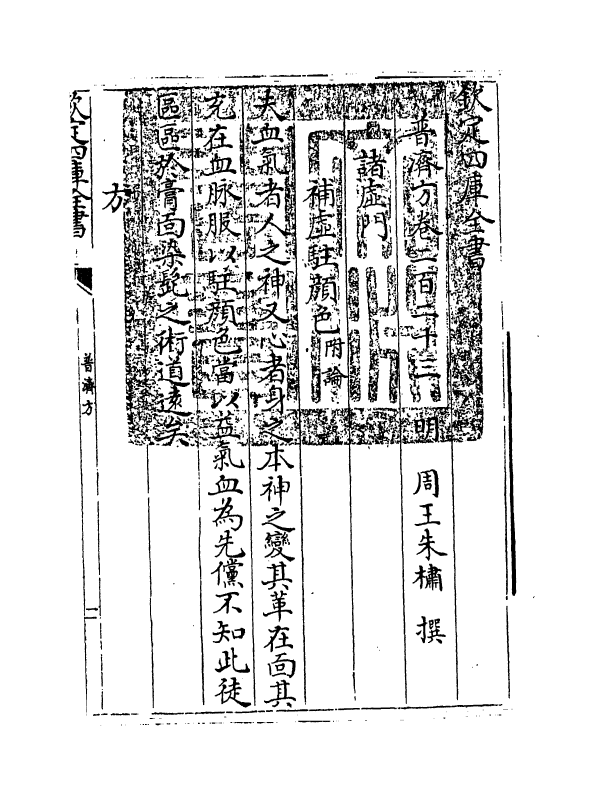 欽定四庫全書
普濟方卷二百二十三 明 周王朱橚 撰
諸虛門
補虛駐顔色附論
夫血氣者人之神又心者身之本神之變其革在面其
充在血脉服以駐顔色當以益氣血為先儻不知此徒
區區於膏面染髭之術道逺矣
方
欽定四庫全書
普濟方